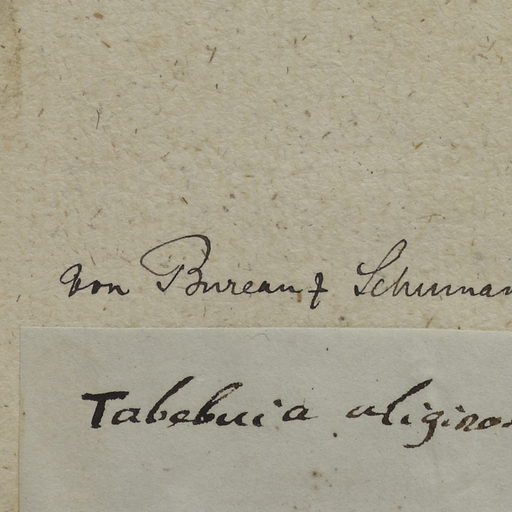 von Bureau & Schuman
Tabebuia uliginos